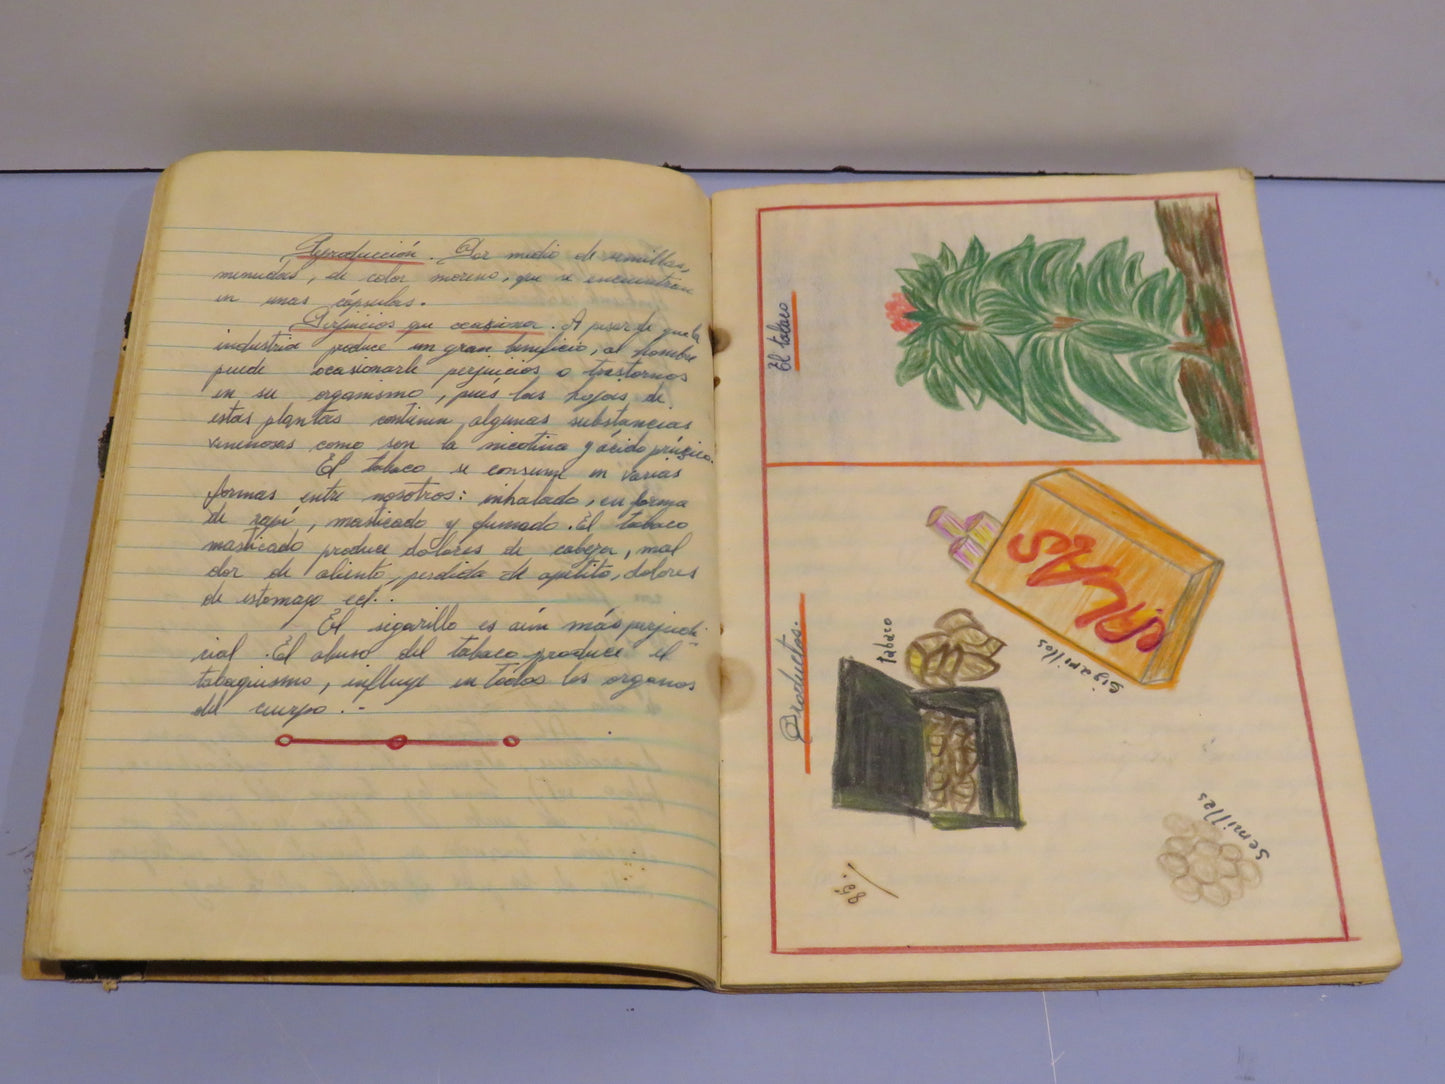 Reproducción. Por medio de semillas,
menudas, de color moreno, que se encuentran
en unas cápsulas.
Perjuicios que ocasiona. A pesar de que la
industria produce un gran beneficio, al hombre
puede ocasionarle perjuicios o trastornos
en su organismo, pués las hojas de
estas plantas contienen algunas substancias
venenosas como son la nicotina y ácido prúsico.
El tabaco se consume en varias
formas entre nosotros: inhalado, en forma
de rapé, masticado y fumado. El tabaco
masticado produce dolores de cabeza, mal
olor de aliento, perdida de apetito, dolores
de estomago ect.
El sigarillo es aún más perjudi-
cial. El abuso del tabaco produce el
tabaquismo, influye en todos los organos
del cuerpo.-
El tabaco
Productos.
tabaco
sigarillos
semillas